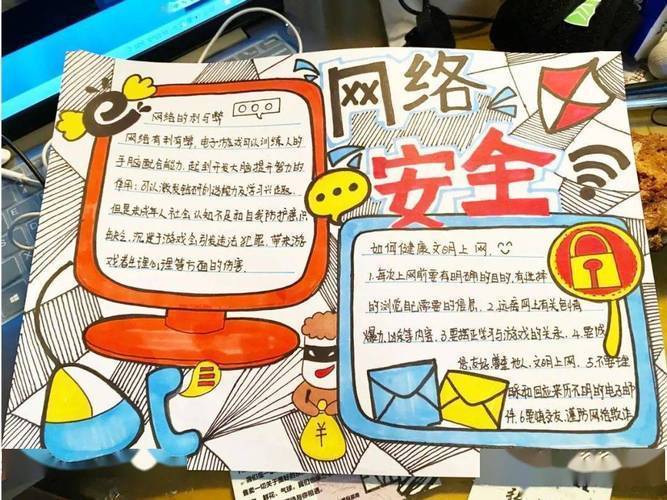 网络
安全
网络的利与弊
网络有利有弊,电子游戏可以训练人的
手用脑配合能力,起到开发大脑提升智力的
作用;可以激发
但是未成年人社会认知不足和自我防护意识
缺乏,沉迷于游戏会引发违法犯罪,带来游
戏者生理心理等方面的伤害.
如何健康文明上网.
1.每次上网前要有明确的目的,有选择
的浏览自己需要的信息. 2.远离网上有关色情
暴力,凶杀等内容. 3.要摆正学习与游戏的关系. 4.要
友好,尊重他人,文明上网. 5.不要
和回应来历不明的电子邮
件.6.要慎交友,谨防网络欺诈
¥